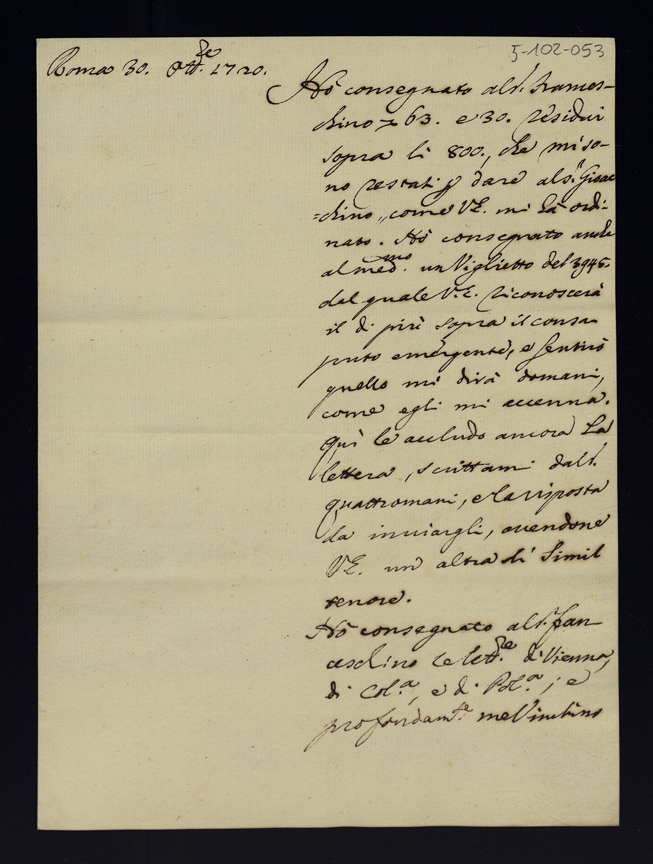 5-102-053
Roma 30. Ott.re 1720.
Hò consegnato al S.r Frances-
chino 63. e 30. residui
sopra li 800., che mi so-
no restati p dare al S.r Gioac-
=chino, come V.E. mi hà ordi-
nato. Hò consegnato anche
al med.mo un Viglietto del 3945.
dal quale V.E. riconoscerà
il di più sopra il consa-
puto emergente, e sentirò
quello mi dirà domani,
come egli mi accenna.
Quì le accludo ancora La
lettera, scrittami dal S.r
Quattromani, e la risposta
da inviargli, avendone
V.E. un altra di simil
tenore.
Hò consegnato al S.r fran-
ceschino le lett.re di Vienna,
di Col.a, e di Pol.a; e
profondam.te me l'inchino